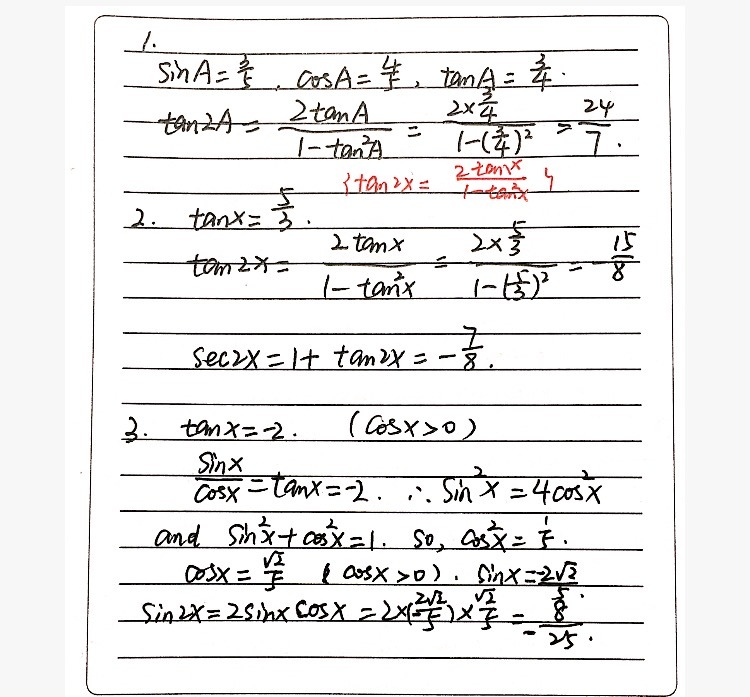 1.
sinA = 3/5 , cosA = 4/5 , tanA = 3/4 .
tan2A = 2tanA / 1 - tan²A = 2×3/4 / 1-(3/4)² = 24/7 .
{tan2x = 2tanx / 1-tan²x }
2. tanx = 5/3 .
tan2x = 2tanx / 1 - tan²x = 2×5/3 / 1-(5/3)² = -15/8
sec2x = 1 + tan2x = -7/8 .
3. tanx = -2 . (cosx > 0)
sinx/cosx = tanx = -2 . ∴ sin²x = 4cos²x
and sin²x + cos²x = 1. So, cos²x = 1/5 .
cosx = √2/5 (cosx > 0) . sinx = -2√2/5 .
sin2x = 2sinx cosx = 2×(-2√2/5)×√2/5 = -8/25 .